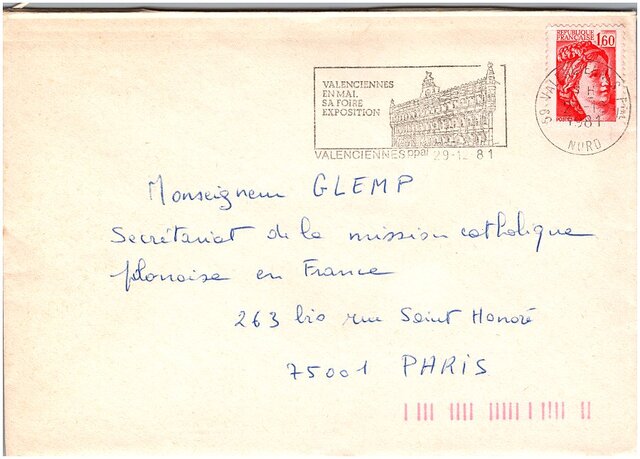 REPUBLIQUE
FRANCAISE 1,60
VALENCIENNES
EN MAI.
SA FOIRE
EXPOSITION
VALENCIENNES PPAL 29-1 81
59 VAL
1981
NORD
Monseigneur GLEMP
Secrétariat de la mission catholique
plonaise en France
263 bis rue Saint Honoré
75001 PARIS